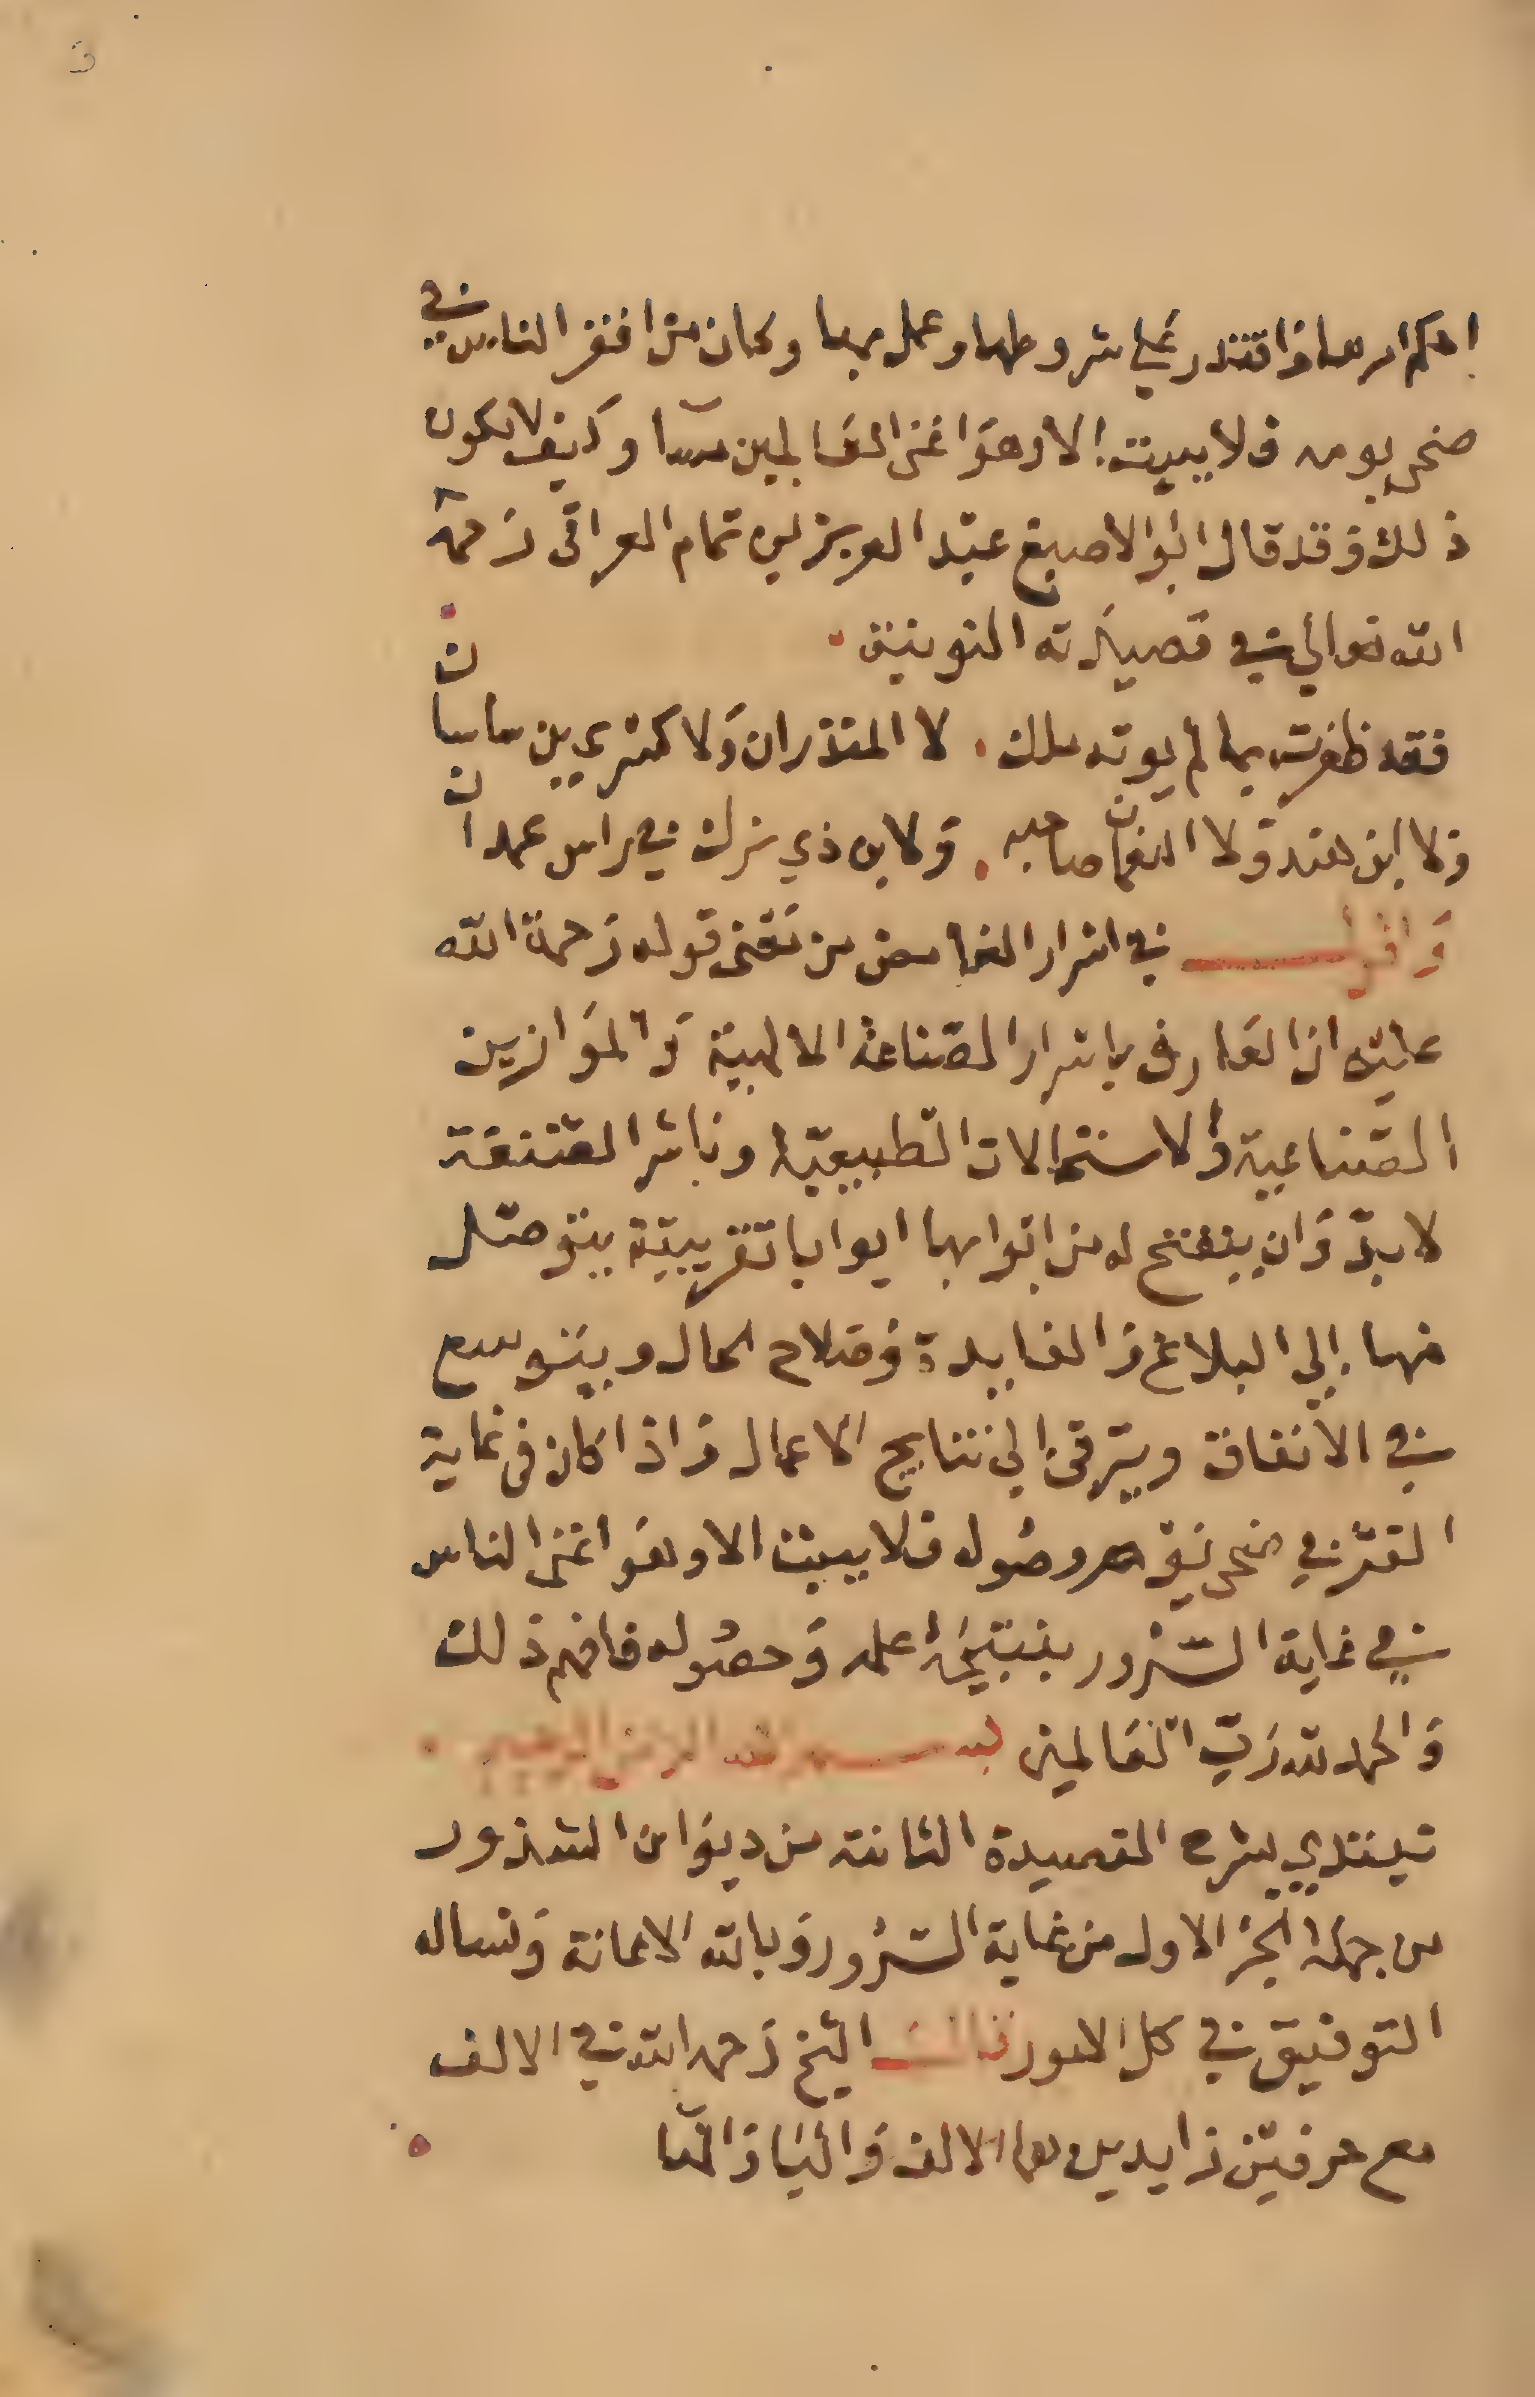 احكم امرها واقتدر على شروطها وعمل بها وكان من افقر الناس في
ضحى يومه فلا يبيت الا وهو اغنى العالمين مسا وكيف لا يكون
ذلك وقد قال ابو الاصبغ عبد العزيز بن تمام العراقى رحمة
الله تعالي في قصيدته النونية
فقد ظفرت بما لم يوته ملك لا المنذران ولا كسري بن ساسان
ولا ابن هند ولا النعمان صاحبه ولا بن ذي يزن في راس غمدان
واقول في اسرار الغامض من معنى قوله رحمة الله
عليه ان العارف باسرار الصناعة الالهية والموازين
الصناعية والاستحالات الطبيعية وناشر الصنعة
لا بد وان ينفتح له من ابوابها ابوابا تقريبية يتوصل
منها إلى البلاغ والفايدة وصلاح الحال ويتوسع
في الانفاق ويترقى الي نتايج الاعمال واذا كان فى غاية
الفقر في ضحى يوم وصوله فلا يبيت الا وهو اغنى الناس
في غاية السرور بنتيجة عمله وحصوله فافهم ذلك
والحمد لله رب العالمين بسم الله الرحمن الرحيم
نبتدي بشرح القصيدة الثانية من ديوان الشذور
من جملة الجز الاول من غاية السرور وبالله الاعانة ونساله
التوفيق في كل الامور قال الشيخ رحمه الله في الالف
مع حرفين زايدين هما الالف واليا والها